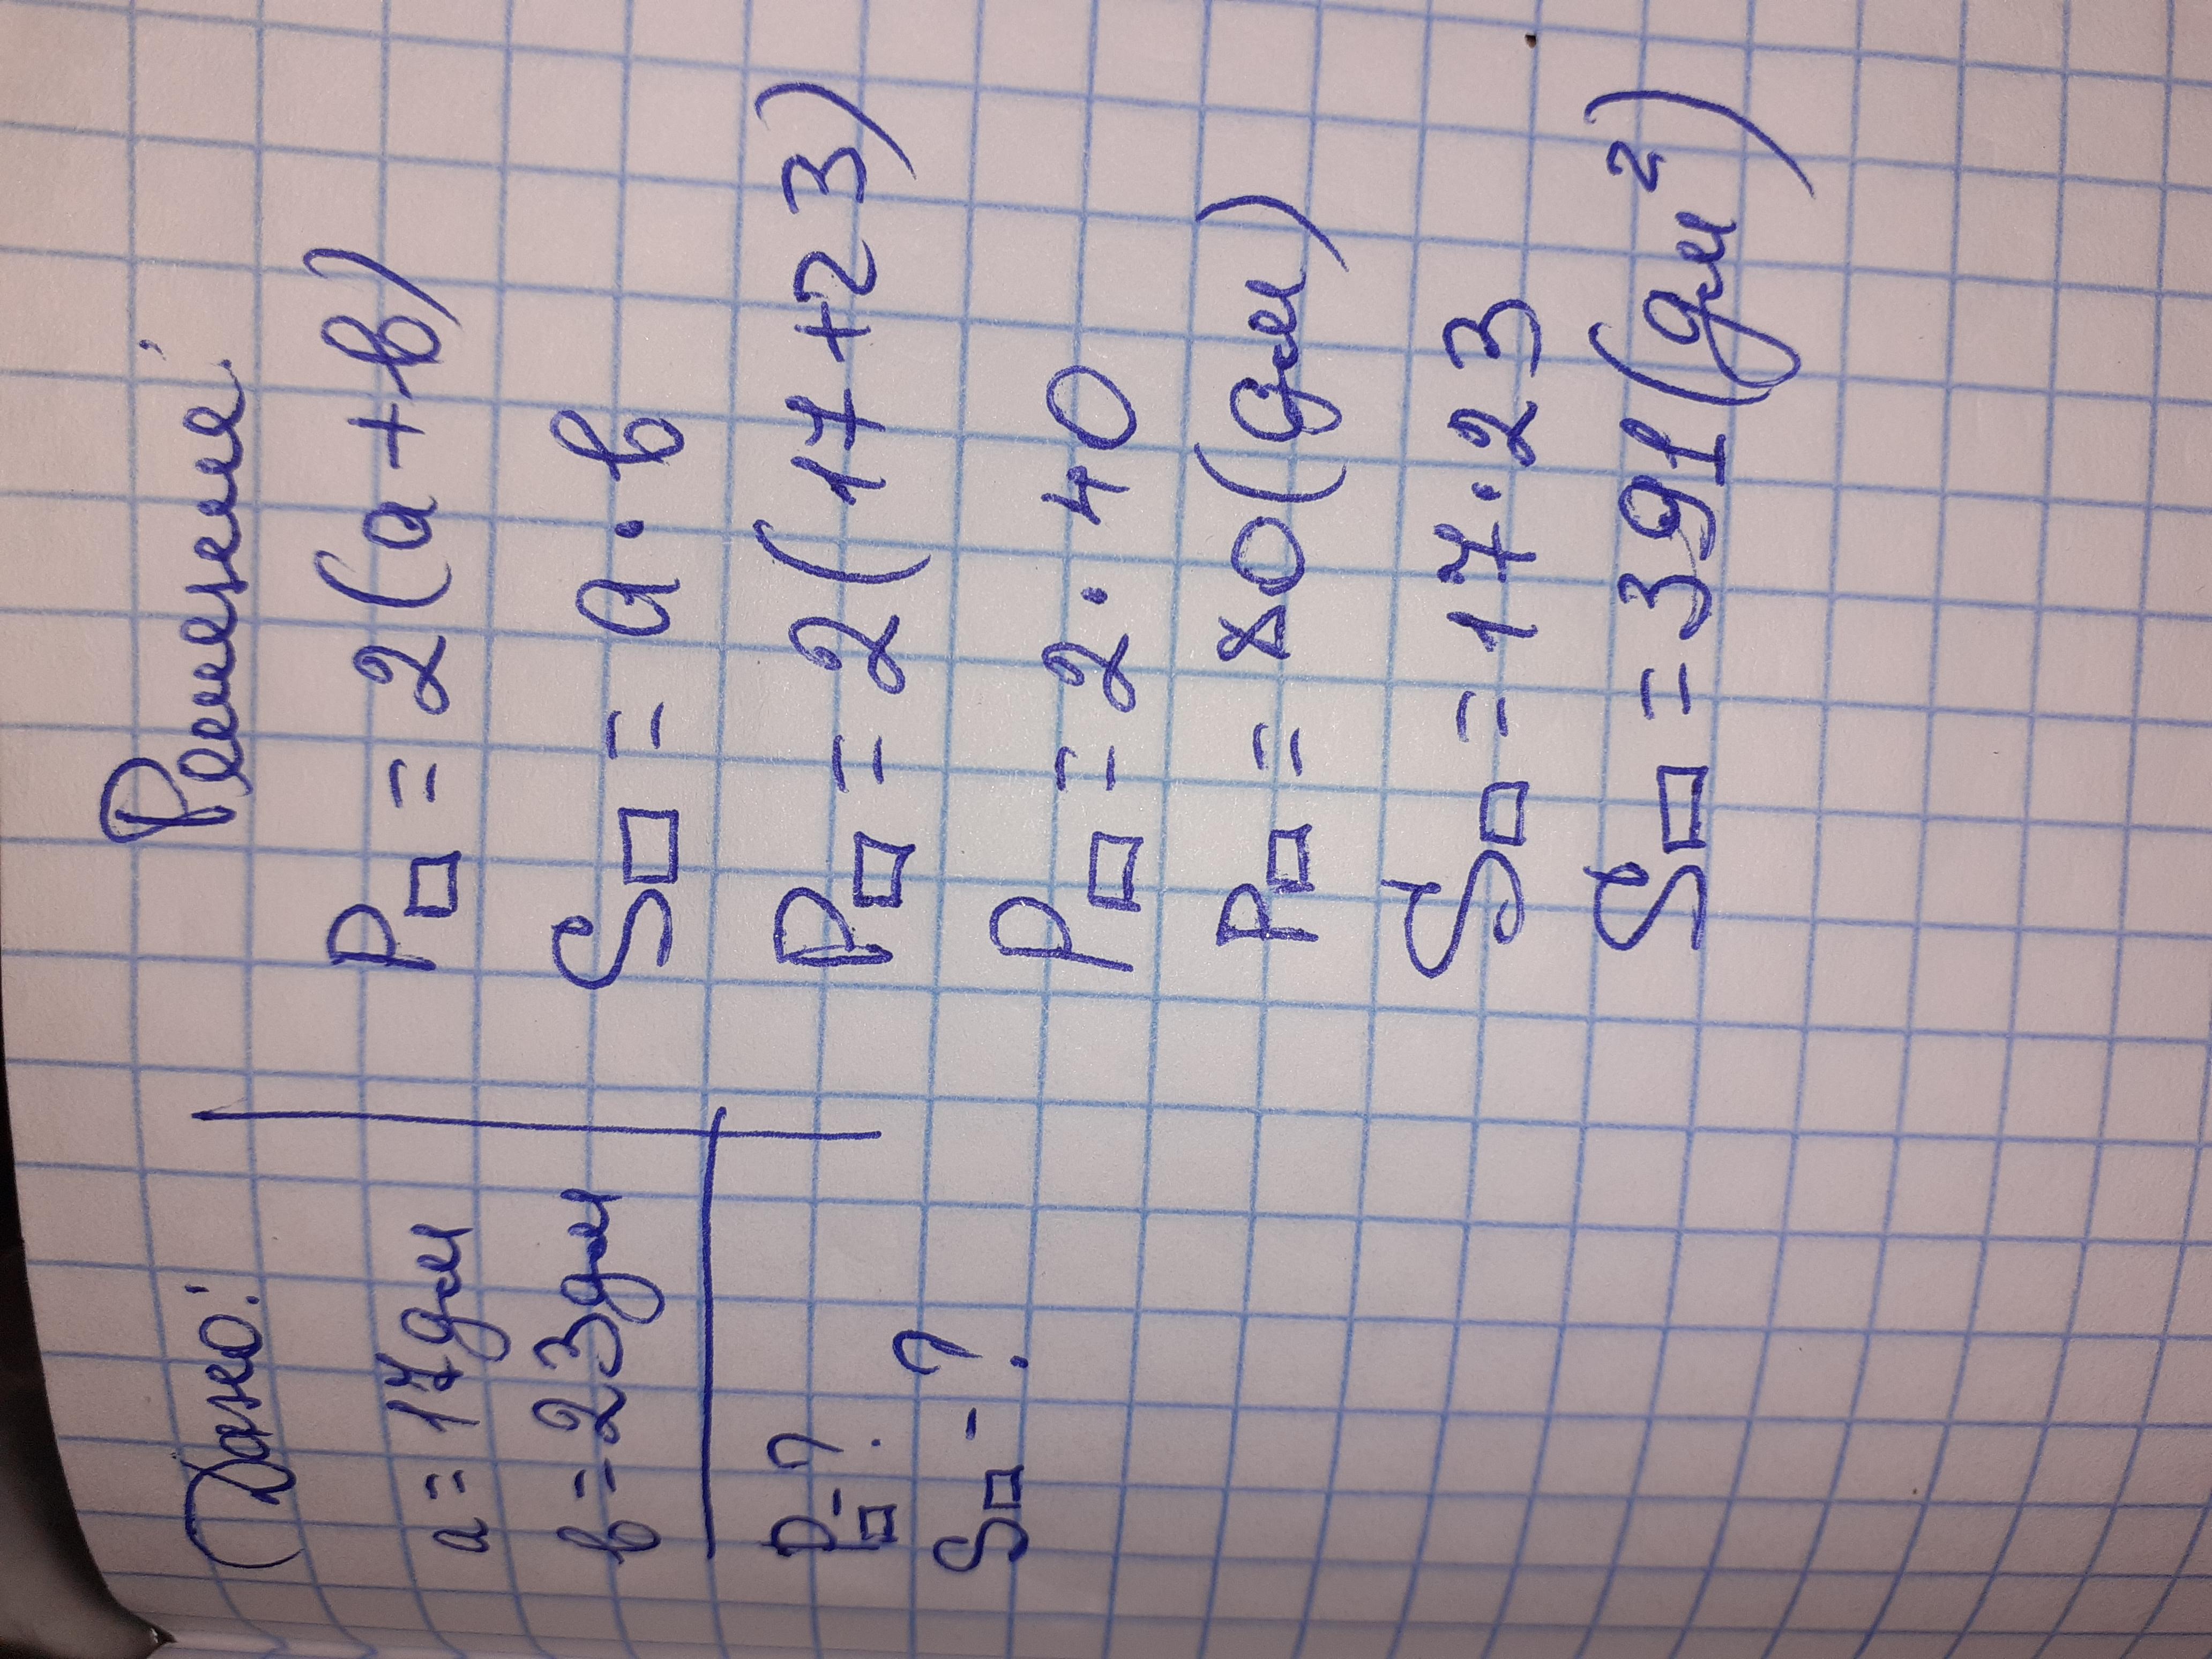 Дано:
a = 17 дм
b = 23 дм
P□ - ?
S□ - ?
Решение:
P□ = 2(a + b)
S□ = a · b
P□ = 2(17 + 23)
P□ = 2 · 40
P□ = 80 (дм)
S□ = 17 · 23
S□ = 391 (дм²)